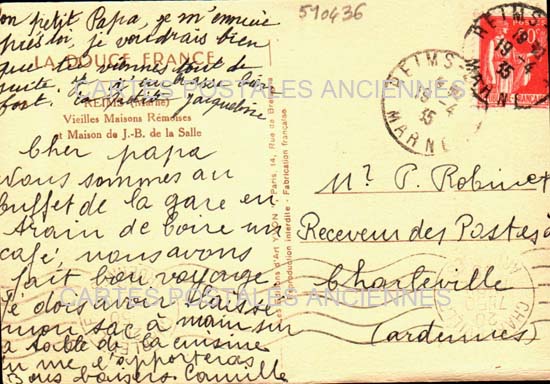 on petit Papa, je m'ennuie
près toi, je voudrais bien
que tu viennes tout de
suite.
fort. ta petite Jacqueline
LA DOUCE FRANCE
REIMS (Marne)
Vieilles Maisons Rémoises
et Maison de J.-B. de la Salle
Cher papa
Nous sommes au
buffet de la gare en
train de boire un
café, nous avons
fait bon voyage
Je dois avoir laissé
mon sac à main sur
la table de la cuisine
tu me l'apporteras
Bons baisers Camille
Les Editions d'Art YVON, Paris, 14, Rue de Bretagne
Reproduction interdite - Fabrication française.
510436
REIMS
18
19-4
35
MARNE
REIMS
19-4
35
MARNE
Mr P. Robinet
Receveur des Postes
Charleville
(Ardennes)
CARTES POSTALES ANCIENNES
CARTES POSTALES ANCIENNES